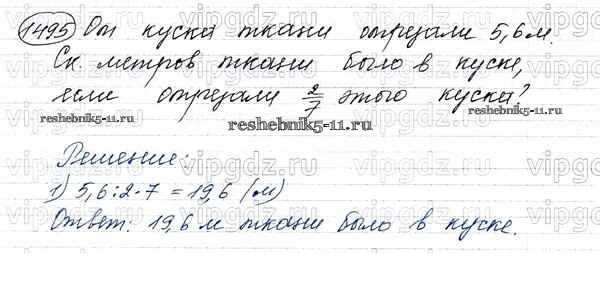 1495 От куска ткани отрезали 5,6 м.
Ск. метров ткани было в куске,
если отрезали 2/7 этого куска?
reshebnik5-11.ru reshebnik5-11.ru
reshebnik5-11.ru
Решение:
1) 5,6:2·7 = 19,6 (м)
Ответ: 19,6 м ткани было в куске.
vipgdz.ru